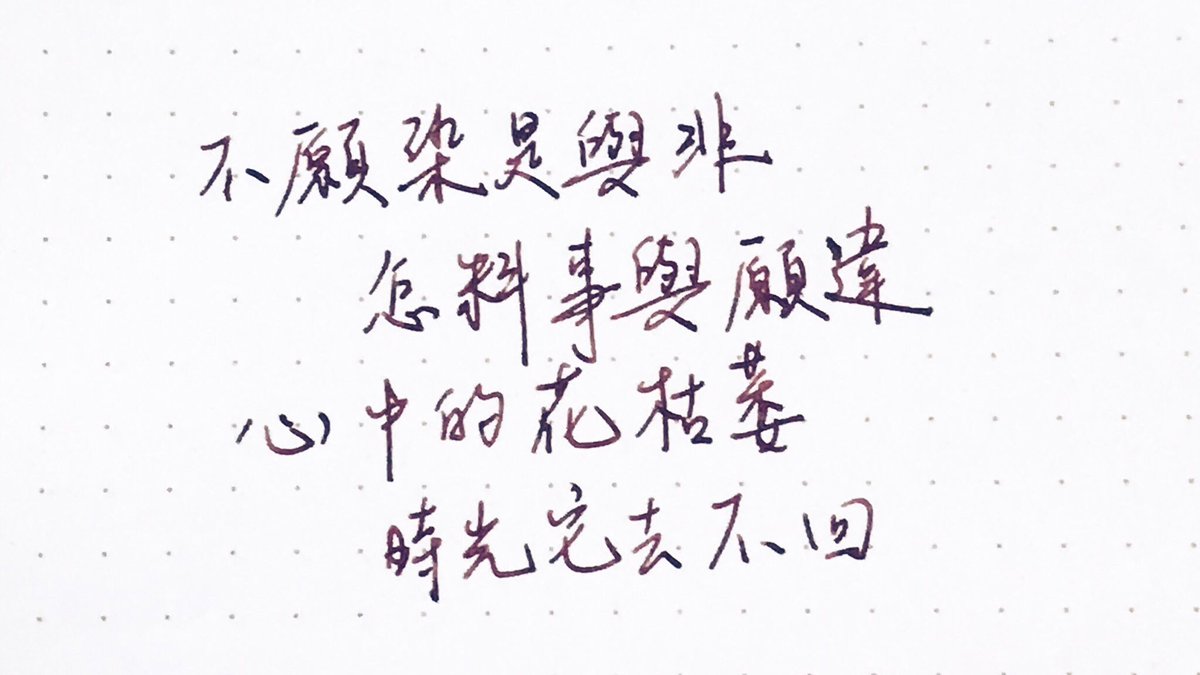 不願染是與非
怎料事與願違
心中的花枯萎
時光它去不回